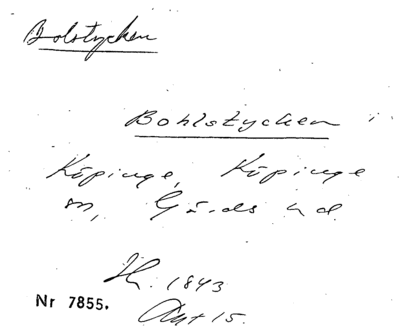 Bolstycken
Bohlstycken i
Köpinge, Köpinge
sn, Gärds hd.
Sk. 1843
Akt 15.
Nr 7855.